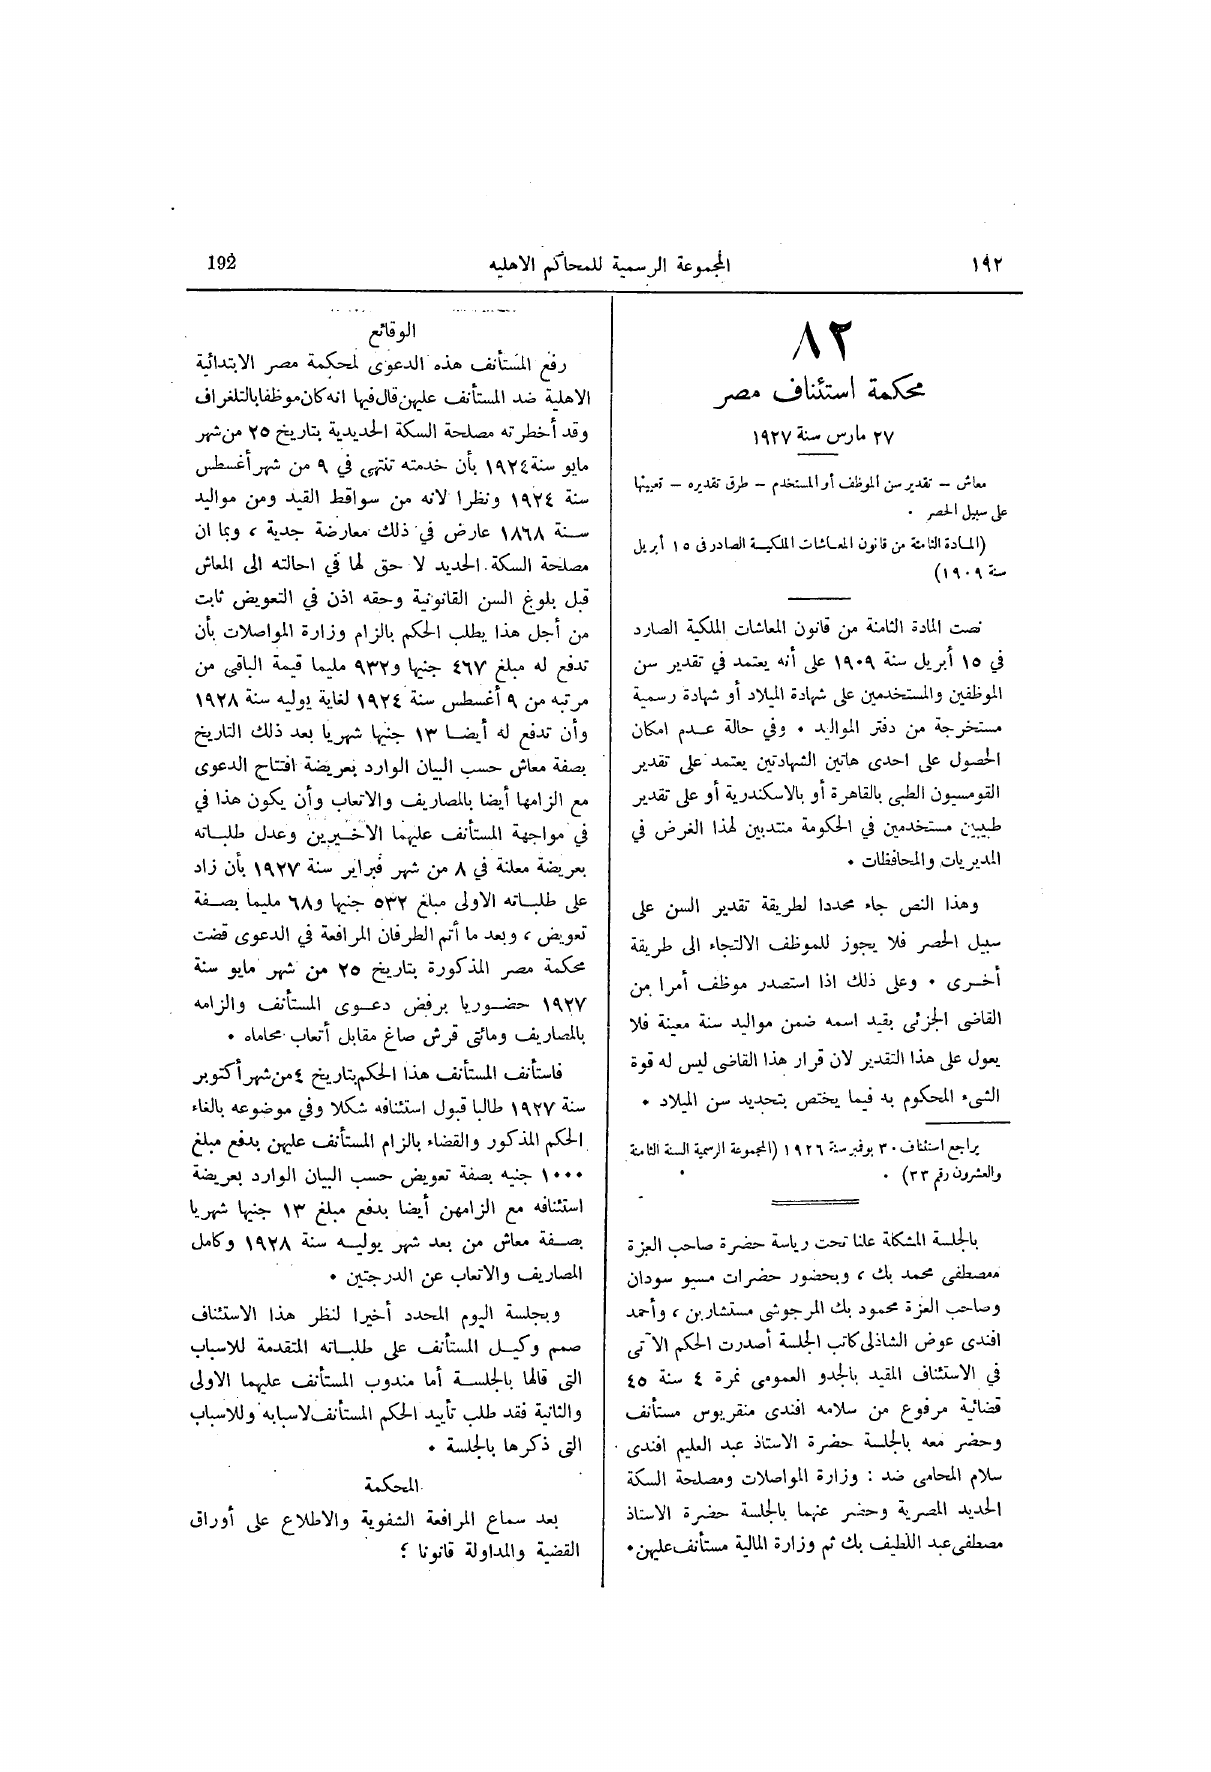 ١٩٢
المجموعة الرسمية للمحاكم الاهليه
192
٨٢
محكمة استئناف مصر
٢٧ مارس سنة ١٩٢٧
معاش — تقدير سن الموظف أو المستخدم — طرق تقديره — تعيينها
على سبيل الحصر .
(المادة الثامنة من قانون المعاشات الملكية الصادر فى ١٥ أبريل
سنة ١٩٠٩)
نصت المادة الثامنة من قانون المعاشات الملكية الصارد
في ١٥ أبريل سنة ١٩٠٩ على أنه يعتمد في تقدير سن
الموظفين والمستخدمين على شهادة الميلاد أو شهادة رسمية
مستخرجة من دفتر المواليد ٠ وفي حالة عدم امكان
الحصول على احدى هاتين الشهادتين يعتمد على تقدير
القومسيون الطبى بالقاهرة أو بالاسكندرية أو على تقدير
طبيبين مستخدمين في الحكومة منتدبين لهذا الغرض في
المديريات والمحافظات ٠
وهذا النص جاء محددا لطريقة تقدير السن على
سبيل الحصر فلا يجوز للموظف الالتجاء الى طريقة
أخرى ٠ وعلى ذلك اذا استصدر موظف أمرا من
القاضى الجزئى بقيد اسمه ضمن مواليد سنة معينة فلا
يعول على هذا التقدير لان قرار هذا القاضى ليس له قوة
الشىء المحكوم به فيما يختص بتحديد سن الميلاد ٠
يراجع استئناف ٣٠ نوفبر سنة ١٩٢٦ (المجموعة الرسمية السنة الثامنة
والعشرون رقم ٣٣) .
بالجلسة المشكلة علنا تحت رياسة حضرة صاحب العزة
مصطفى محمد بك ، وبحضور حضرات مسيو سودان
وصاحب العزة محمود بك المرجوشى مستشارين ، وأحمد
افندى عوض الشاذلى كاتب الجلسة أصدرت الحكم الآتى
في الاستئناف المقيد بالجدو العمومى نمرة ٤ سنة ٤٥
قضائية مرفوع من سلامه افندى منقريوس مستأنف
وحضر معه بالجلسة حضرة الاستاذ عبد العليم افندى
سلام المحامى ضد : وزارة المواصلات ومصلحة السكة
الحديد المصرية وحضر عنهما بالجلسة حضرة الاستاذ
مصطفى عبد اللطيف بك ثم وزارة المالية مستأنف عليهن ٠
الوقائع
رفع المستأنف هذه الدعوى لمحكمة مصر الابتدائية
الاهلية ضد المستأنف عليهن قال فيها انه كان موظفا بالتلغراف
وقد أخطرته مصلحة السكة الحديدية بتاريخ ٢٥ من شهر
مايو سنة ١٩٢٤ بأن خدمته تنتهى في ٩ من شهر أغسطس
سنة ١٩٢٤ ونظرا لانه من سواقط القيد ومن مواليد
سنة ١٨٦٨ عارض في ذلك معارضة جدية ، وبما ان
مصلحة السكة الحديد لا حق لها في احالته الى المعاش
قبل بلوغ السن القانونية وحقه اذن في التعويض ثابت
من أجل هذا يطلب الحكم بالزام وزارة المواصلات بأن
تدفع له مبلغ ٤٦٧ جنيها و٩٣٢ مليما قيمة الباقى من
مرتبه من ٩ أغسطس سنة ١٩٢٤ لغاية يوليه سنة ١٩٢٨
وأن تدفع له أيضا ١٣ جنيها شهريا بعد ذلك التاريخ
بصفة معاش حسب البيان الوارد بعريضة افتتاح الدعوى
مع الزامها أيضا بالمصاريف والاتعاب وأن يكون هذا في
في مواجهة المستأنف عليهما الاخيرين وعدل طلباته
بعريضة معلنة في ٨ من شهر فبراير سنة ١٩٢٧ بأن زاد
على طلباته الاولى مبلغ ٥٣٢ جنيها و٦٨ مليما بصفة
تعويض ، وبعد ما أتم الطرفان المرافعة في الدعوى قضت
محكمة مصر المذكورة بتاريخ ٢٥ من شهر مايو سنة
١٩٢٧ حضوريا برفض دعوى المستأنف والزامه
بالمصاريف ومائتى قرش صاغ مقابل أتعاب محاماه ٠
فاستأنف المستأنف هذا الحكم بتاريخ ٤ من شهر أكتوبر
سنة ١٩٢٧ طالبا قبول استئنافه شكلا وفي موضوعه بالغاء
الحكم المذكور والقضاء بالزام المستأنف عليهن بدفع مبلغ
١٠٠٠ جنيه بصفة تعويض حسب البيان الوارد بعريضة
استئنافه مع الزامهن أيضا بدفع مبلغ ١٣ جنيها شهريا
بصفة معاش من بعد شهر يوليه سنة ١٩٢٨ وكامل
المصاريف والاتعاب عن الدرجتين ٠
وبجلسة اليوم المحدد أخيرا لنظر هذا الاستئناف
صمم وكيل المستأنف على طلباته المتقدمة للاسباب
التى قالها بالجلسة أما مندوب المستأنف عليهما الاولى
والثانية فقد طلب تأييد الحكم المستأنف لاسبابه وللاسباب
التى ذكرها بالجلسة ٠
المحكمة
بعد سماع المرافعة الشفوية والاطلاع على أوراق
القضية والمداولة قانونا ؛